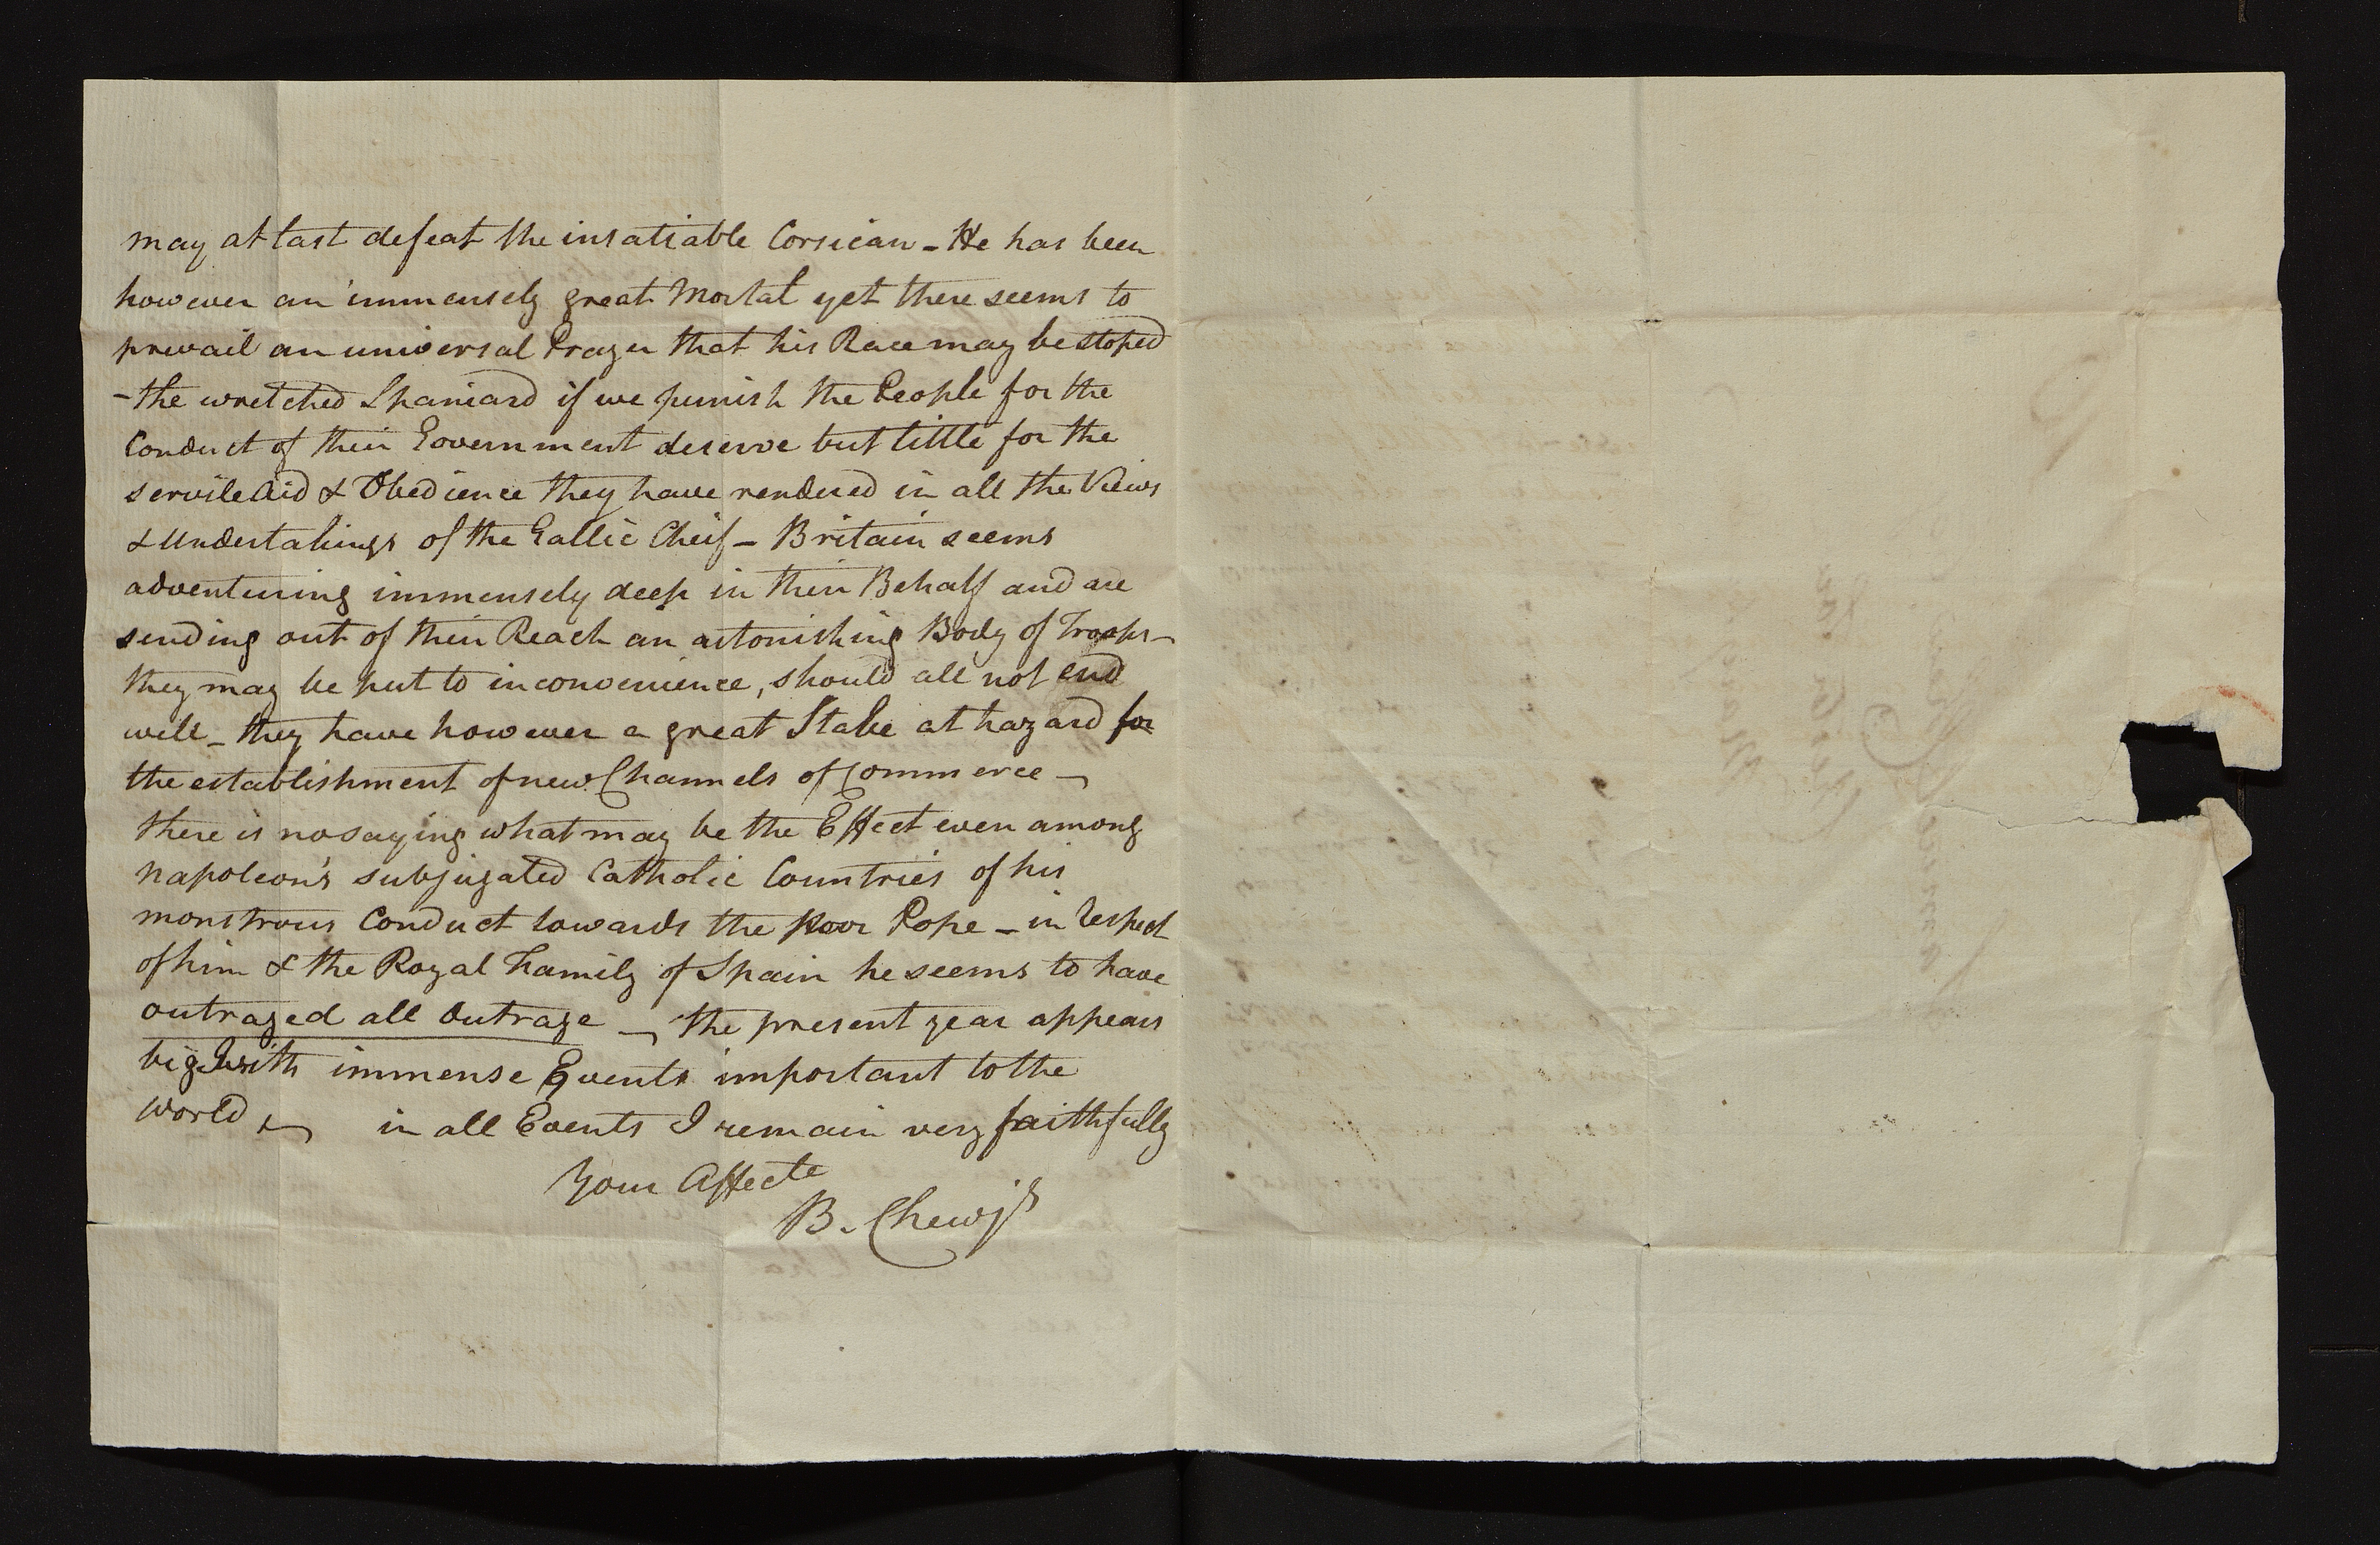 may at last defeat the insatiable Corsican - He has been
however an immensely great Mortal yet there seems to
prevail an universal Prayer that his Race may be stoped
- the wretched Spaniard if we punish the People for the
Conduct of their Government deserve but little for the
servile Aid & Obedience they have rendered in all the Views
& Undertakings of the Gallic Cheif - Britain seems
adventuring immensely deep in their Behalf and are
sending out of their Reach an astonishing Body of Troops -
they may be put to inconvenience, should all not end
well - they have however a great Stake at hazard for
the establishment of new Channels of Commerce -
there is no saying what may be the Effect even among
Napoleon's subjugated Catholic Countries of his
monstrous Conduct towards the poor Pope - in respect
of him & the Royal Family of Spain he seems to have
outraged all Outrage - the present year appears
big with immense Events important to the
World - in all Events I remain very faithfully
Your Affecte
B. Chew jr